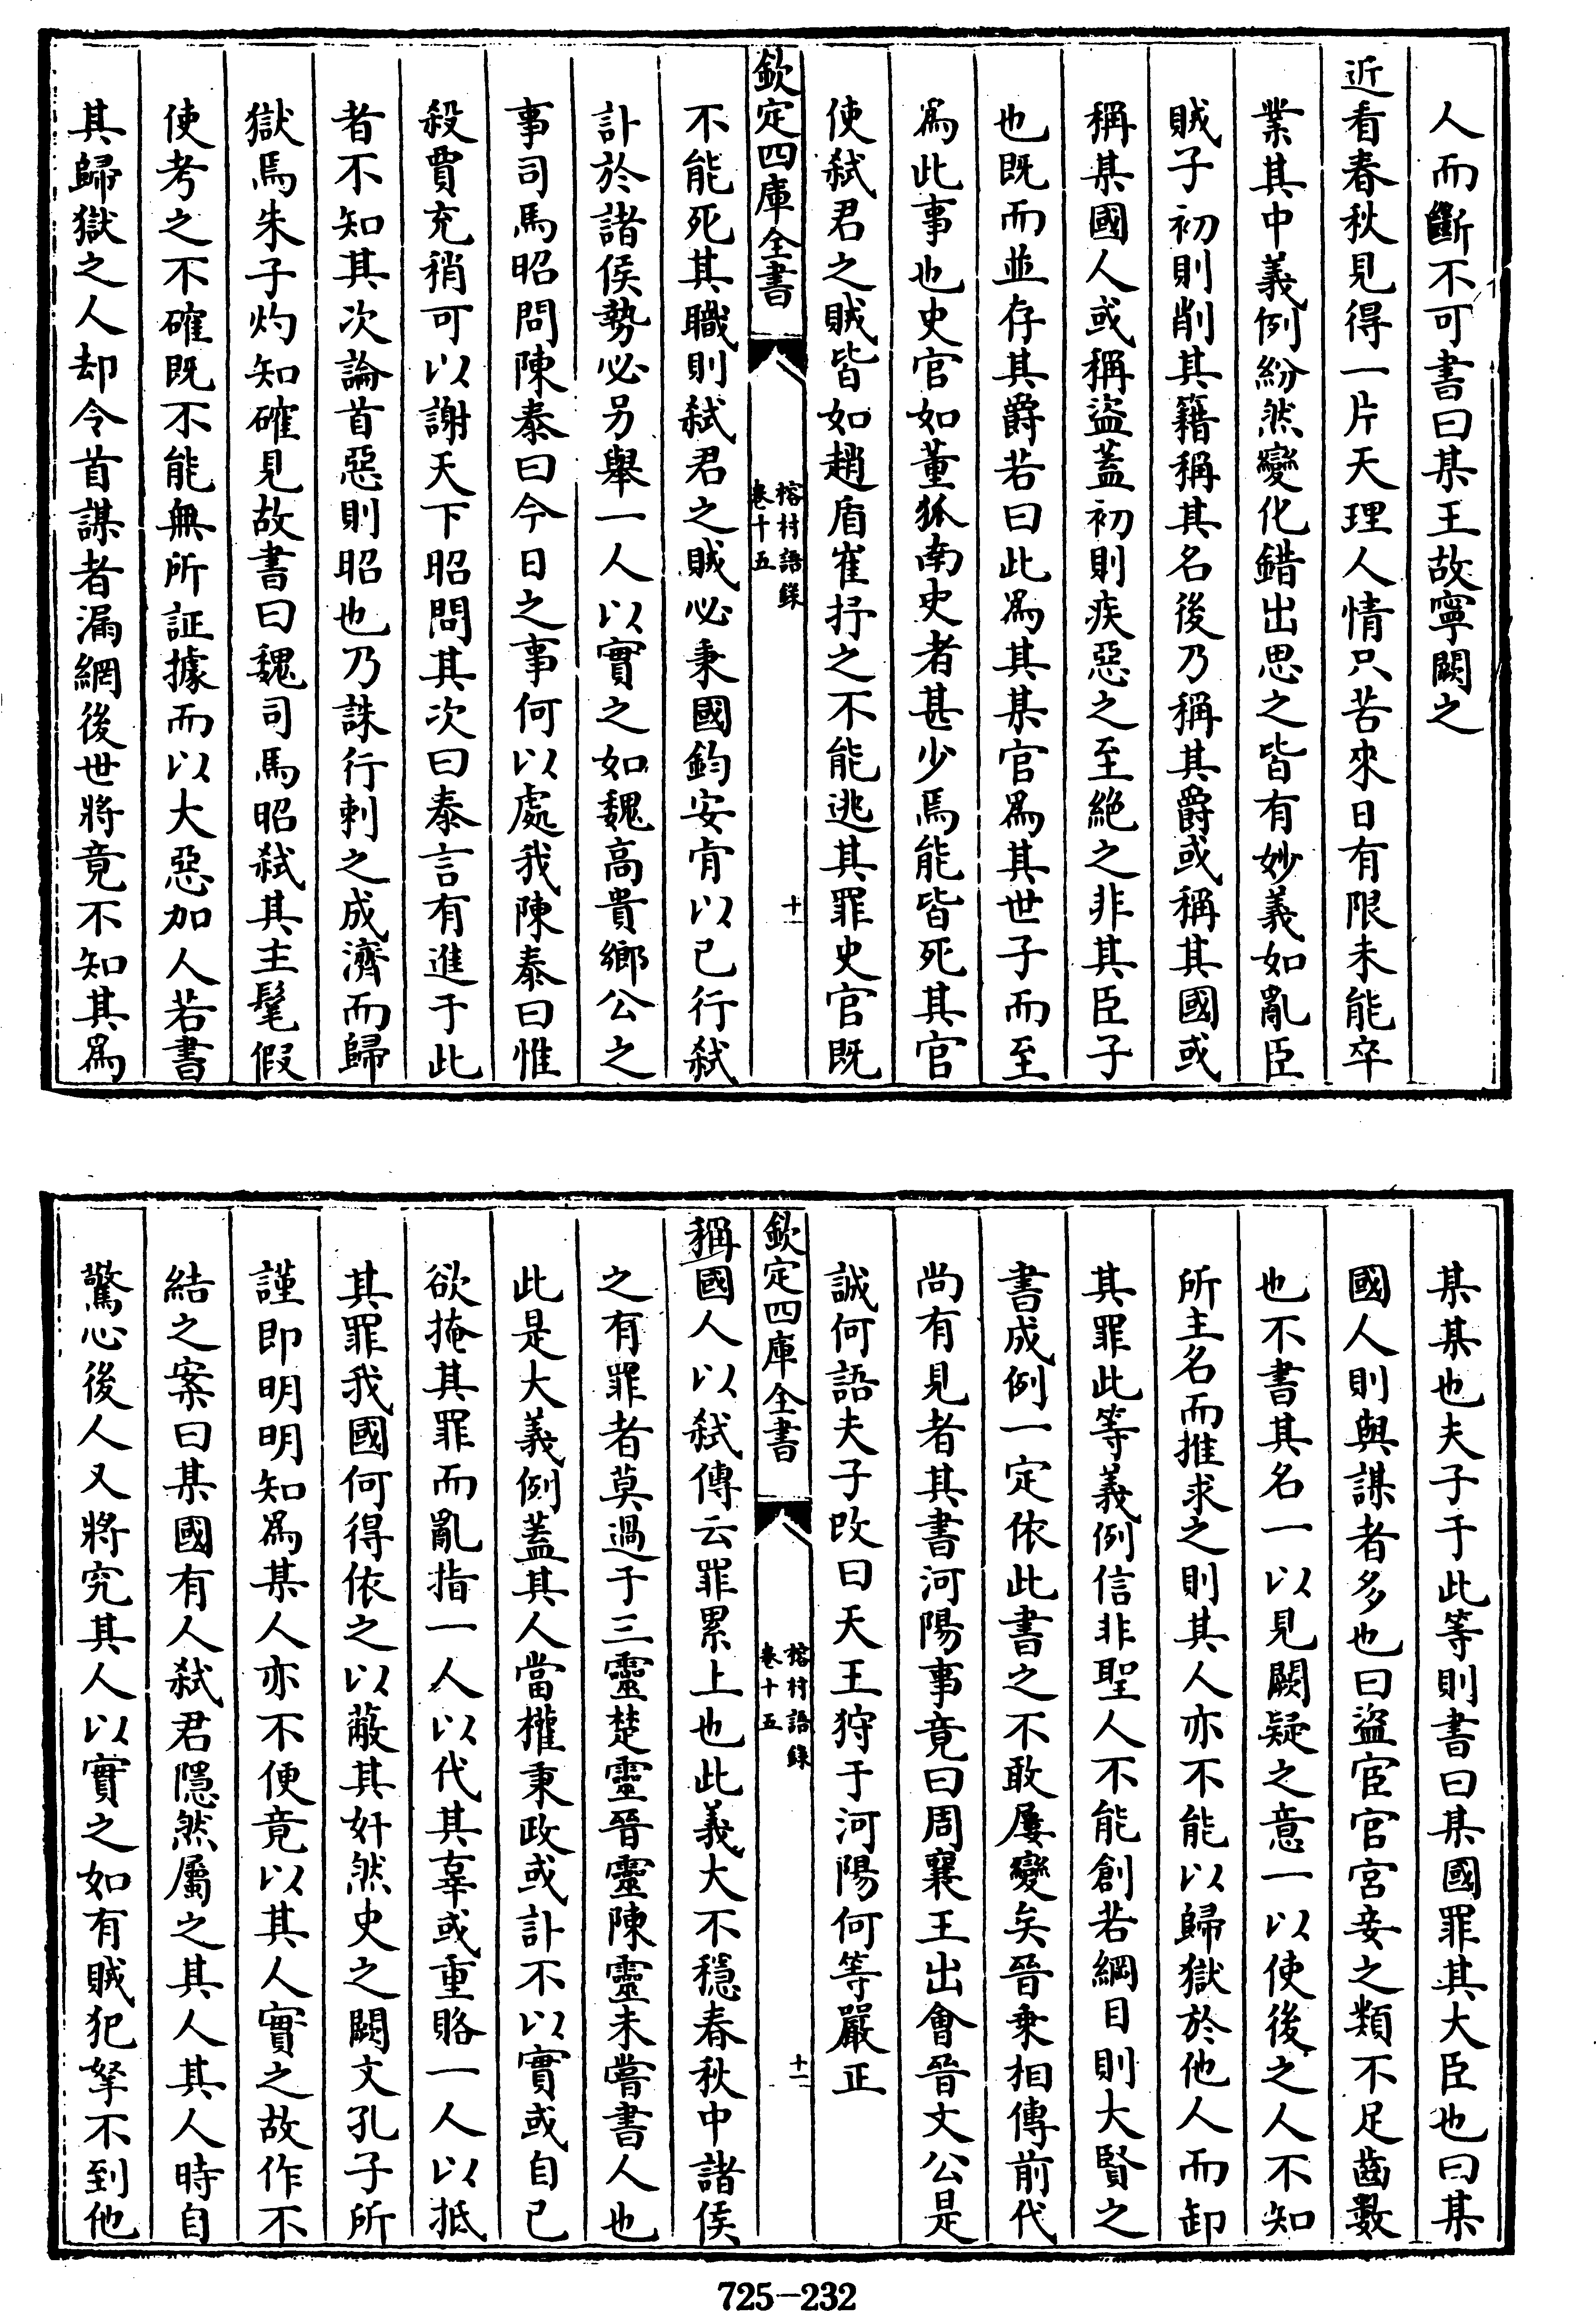 人而斷不可書曰某王故寧闕之
近看春秋見得一片天理人情只苦來日有限未能卒
業其中義例紛然變化錯出思之皆有妙義如亂臣
賊子初則削其籍稱其名後乃稱其爵或稱其國或
稱某國人或稱盜蓋初則疾惡之至絕之非其臣子
也既而並存其爵若曰此爲其某官爲其世子而至
爲此事也史官如董狐南史者甚少焉能皆死其官
使弑君之賊皆如趙盾崔抒之不能逃其罪史官既
欽定四庫全書
榕村語錄
卷十五
十一
不能死其職則弑君之賊必秉國鈞安肯以已行弑
訃於諸侯勢必另舉一人以實之如魏高貴鄉公之
事司馬昭問陳泰曰今日之事何以處我陳泰曰惟
殺賈充稍可以謝天下昭問其次曰泰言有進于此
者不知其次論首惡則昭也乃誅行刺之成濟而歸
獄焉朱子灼知確見故書曰魏司馬昭弑其主髦假
使考之不確既不能無所証據而以大惡加人若書
其歸獄之人却令首謀者漏網後世將竟不知其爲
某某也夫子于此等則書曰某國罪其大臣也曰某
國人則與謀者多也曰盜宦官宮妾之類不足齒數
也不書其名一以見闕疑之意一以使後之人不知
所主名而推求之則其人亦不能以歸獄於他人而卸
其罪此等義例信非聖人不能創若綱目則大賢之
書成例一定依此書之不敢屢變矣晉乘相傳前代
尚有見者其書河陽事竟曰周襄王出會晉文公是
誠何語夫子改曰天王狩于河陽何等嚴正
欽定四庫全書
榕村語錄
卷十五
十二
稱國人以弑傳云罪累上也此義大不穩春秋中諸侯
之有罪者莫過于三靈楚靈晉靈陳靈未嘗書人也
此是大義例蓋其人當權秉政或訃不以實或自已
欲掩其罪而亂指一人以代其辜或重賂一人以抵
其罪我國何得依之以蔽其奸然史之闕文孔子所
謹即明明知爲某人亦不便竟以其人實之故作不
結之案曰某國有人弑君隱然屬之其人其人時自
驚心後人又將究其人以實之如有賊犯拏不到他
725-232